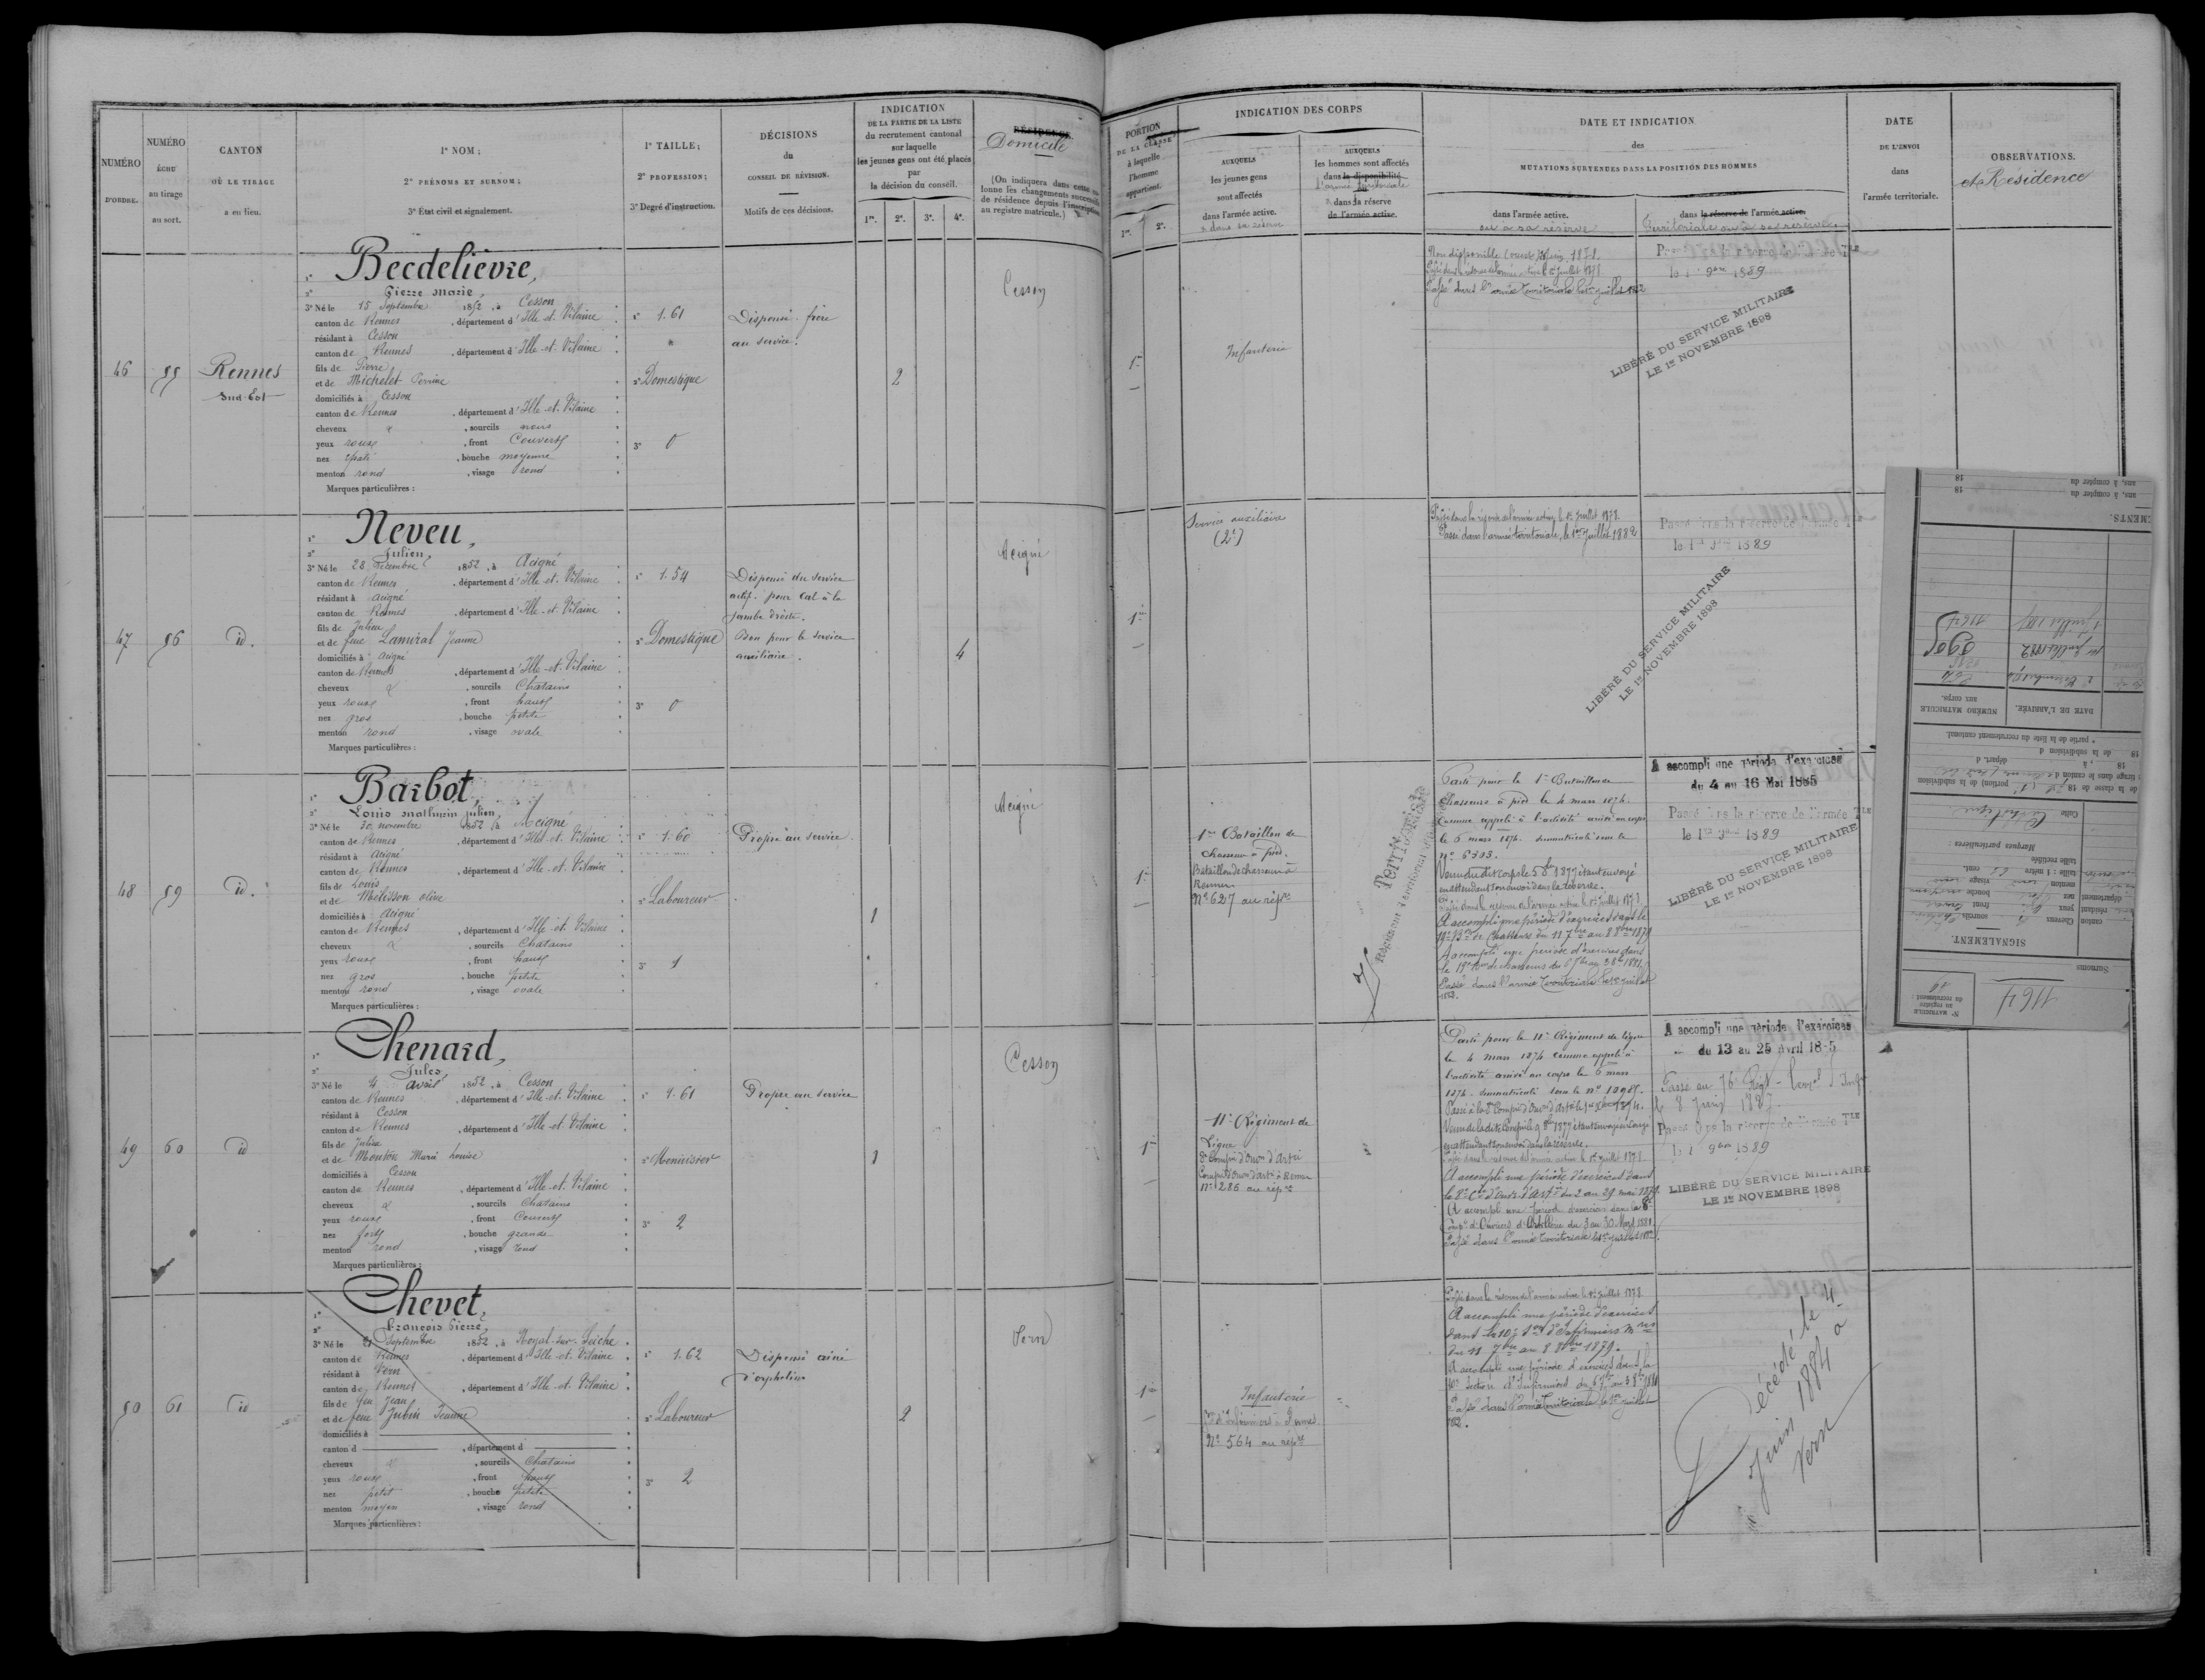 NUMÉRO
D'ORDRE.
NUMÉRO
ÉCHU
au tirage
au sort.
CANTON
OÙ LE TIRAGE
a eu lieu.
1º NOM;
2º PRÉNOMS ET SURNOM;
3º État civil et signalement.
1º TAILLE;
2º PROFESSION;
3º Degré d'instruction.
DÉCISIONS
du
CONSEIL DE RÉVISION.
Motifs de ces décisions.
INDICATION
DE LA PARTIE DE LA LISTE
du recrutement cantonal
sur laquelle
les jeunes gens ont été placés
par
la décision du conseil.
1re. 2e. 3e. 4e.
RÉSIDENCE
Domicile
(On indiquera dans cette colonne les changements successifs de résidence depuis l'inscription au registre matricule.)
PORTION
DE LA CLASSE
à laquelle
l'homme
appartient.
1re. 2e.
INDICATION DES CORPS
AUXQUELS
les jeunes gens
sont affectés
dans l'armée active.
ou dans sa réserve
AUXQUELS
les hommes sont affectés
dans la disponibilité
l'armée territoriale
ou
dans sa réserve
de l'armée active.
DATE ET INDICATION
des
MUTATIONS SURVENUES DANS LA POSITION DES HOMMES
dans l'armée active.
ou à sa réserve
dans la réserve de l'armée active.
Territoriale ou à sa réserve.
DATE
DE L'ENVOI
dans
l'armée territoriale.
OBSERVATIONS.
et Résidence
46
55
Rennes
Sud-Est
1º Becdelièvre,
2º Pierre Marie,
3º Né le 15 Septembre 1852, à Cesson
canton de Rennes, département d'Ille-et-Vilaine
résidant à Cesson
canton de Rennes, département d'Ille-et-Vilaine
fils de Pierre
et de Michelet Perrine
domiciliés à Cesson
canton de Rennes, département d'Ille-et-Vilaine
cheveux &, sourcils noirs
yeux roux, front Couvert
nez épaté, bouche moyenne
menton rond, visage rond
Marques particulières:
1º 1.61
2º Domestique
3º 0
Dispensé frère
au service.
2
Cesson
1re
Infanterie
Passé dans l'armée territoriale le 1er juillet 1882
le 1er 9bre 1889
LIBÉRÉ DU SERVICE MILITAIRE
LE 1er NOVEMBRE 1898
47
56
id.
1º Neveu,
2º Julien,
3º Né le 28 Décembre 1852, à Acigné
canton de Rennes, département d'Ille-et-Vilaine
résidant à Acigné
canton de Rennes, département d'Ille-et-Vilaine
fils de Julien
et de feue Lamiral Jeanne
domiciliés à Acigné
canton de Rennes, département d'Ille-et-Vilaine
cheveux &, sourcils Chatains
yeux roux, front haut
nez gros, bouche petite
menton rond, visage ovale
Marques particulières:
1º 1.54
2º Domestique
3º 0
Dispensé du service
actif. pour cal à la
jambe droite.
Bon pour le service
auxiliaire.
4
Acigné
1re
Service auxiliaire
(2e)
Passé dans la réserve de l'armée active le 1er Juillet 1878.
Passé dans l'armée territoriale, le 1er Juillet 1882
Passé dans la réserve de l'armée TLE
le 1er 9bre 1889
LIBÉRÉ DU SERVICE MILITAIRE
LE 1er NOVEMBRE 1898
48
59
id.
1º Barbot,
2º Louis Mathurin Julien,
3º Né le 30 novembre 1852, à Acigné
canton de Rennes, département d'Ille-et-Vilaine
résidant à Acigné
canton de Rennes, département d'Ille-et-Vilaine
fils de Louis
et de Melisson Olive
domiciliés à Acigné
canton de Rennes, département d'Ille-et-Vilaine
cheveux &, sourcils Chatains
yeux roux, front haut
nez gros, bouche petite
menton rond, visage ovale
Marques particulières:
1º 1.60
2º Laboureur
3º 1
Propre au service
1
Acigné
1re
1er Bataillon de
Chasseurs à pied.
Bataillon de chasseurs à
Rennes
Nº 627 au répre
Parti pour le 1er Bataillon de
Chasseurs à pied le 4 mars 1874.
Comme appelé à l'activité arrivé au corps
le 6 mars 1874. immatriculé sous le
nº 6303.
Venu du dit Corps le 5 8bre 1877 étant envoyé
en attendant son envoi dans la réserve.
Passé dans la réserve de l'armée active le 1er Juillet 1878.
A accompli une période d'exercices dans le
19e Bon de Chasseurs du 11 7bre au 8 8bre 1879
A accompli une période d'exercices dans
Passé dans l'armée territoriale le 1er juillet
1882.
A accompli une période d'exercices
du 4 au 16 Mai 1885
Passé dans la réserve de l'armée TLE
le 1er 9bre 1889
LIBÉRÉ DU SERVICE MILITAIRE
LE 1er NOVEMBRE 1898
49
60
id
1º Chenard,
2º Jules,
3º Né le 4 avril 1852, à Cesson
canton de Rennes, département d'Ille-et-Vilaine
résidant à Cesson
canton de Rennes, département d'Ille-et-Vilaine
fils de Julien
et de Mouton Marie Louise
domiciliés à Cesson
canton de Rennes, département d'Ille-et-Vilaine
cheveux &, sourcils Chatains
yeux roux, front Couvert
nez fort, bouche grande
menton rond, visage rond
Marques particulières:
1º 1.61
2º Menuisier
3º 2
Propre au service
1
Cesson
1re
11e Régiment de
Ligne
8e Compie d'Ouvrs d'Artie
Compie d'Ouvrs d'artie à Rennes
Nº 286 au répre
Parti pour le 11e Régiment de ligne
le 4 mars 1874 comme appelé à
l'activité arrivé au corps le 6 mars
1874. immatriculé sous le nº
Passé dans la réserve de l'armée active le 1er Juillet 1878.
A accompli une période d'exercices dans
la 8e Cie d'Ouvrs d'Artie du 2 au 29 mai 1879.
A accompli une période d'exercices dans la 8e
Compie d'Ouvriers d'Artillerie du 3 au 30 Mars 1881.
Passé dans l'armée territoriale le 1er juillet 1882.
A accompli une période d'exercices
du 13 au 25 Avril 1885
Passé au 76e Régt Terral d'Infie
le 8 Juin 1887.
Passé dans la réserve de l'armée TLE
le 1er 9bre 1889
LIBÉRÉ DU SERVICE MILITAIRE
LE 1er NOVEMBRE 1898
50
61
id
1º Chevet,
2º François Pierre,
3º Né le 21 Septembre 1852, à Noyal-sur-Seiche
canton de Rennes, département d'Ille-et-Vilaine
résidant à Vern
canton de Rennes, département d'Ille-et-Vilaine
fils de feu Jean
et de feue Jubin Jeanne
domiciliés à
canton d, département d
cheveux &, sourcils Chatains
yeux roux, front haut
nez petit, bouche petite
menton moyen, visage rond
Marques particulières:
1º 1.62
2º Laboureur
3º 2
Dispensé aîné
d'orphelins
2
Vern
1re
Infanterie
Son d'Infirmiers à Rennes.
Nº 564 au répre
Passé dans la réserve de l'armée active le 1er Juillet 1878.
A accompli une période d'exercices
dans la 10e Son d'Infirmiers Mres
du 11 7bre au 8 8bre 1879.
A accompli une période d'exercices dans la
10e Section d'Infirmiers
Passé dans l'armée territoriale le 1er juillet
1882.
Décédé le 4
Juin 1884 à
Vern
1164
Nº MATRICULE
au registre
du recrutement
Surnoms
SIGNALEMENT.
Cheveux
sourcils
yeux
front
nez
bouche
menton
visage
taille: 1 mètre
cent.
taille rectifiée
Marques particulières:
Culte Catholique
de la classe de 18
portion) de la subdivision
tirage dans le canton de
18, à
départ. d
18 de la subdivision d
e partie de la liste du recrutement cantonal.
DATE DE L'ARRIVÉE.
NUMÉRO MATRICULE
aux corps.
1164
ans, à compter du 18
ans, à compter du 18